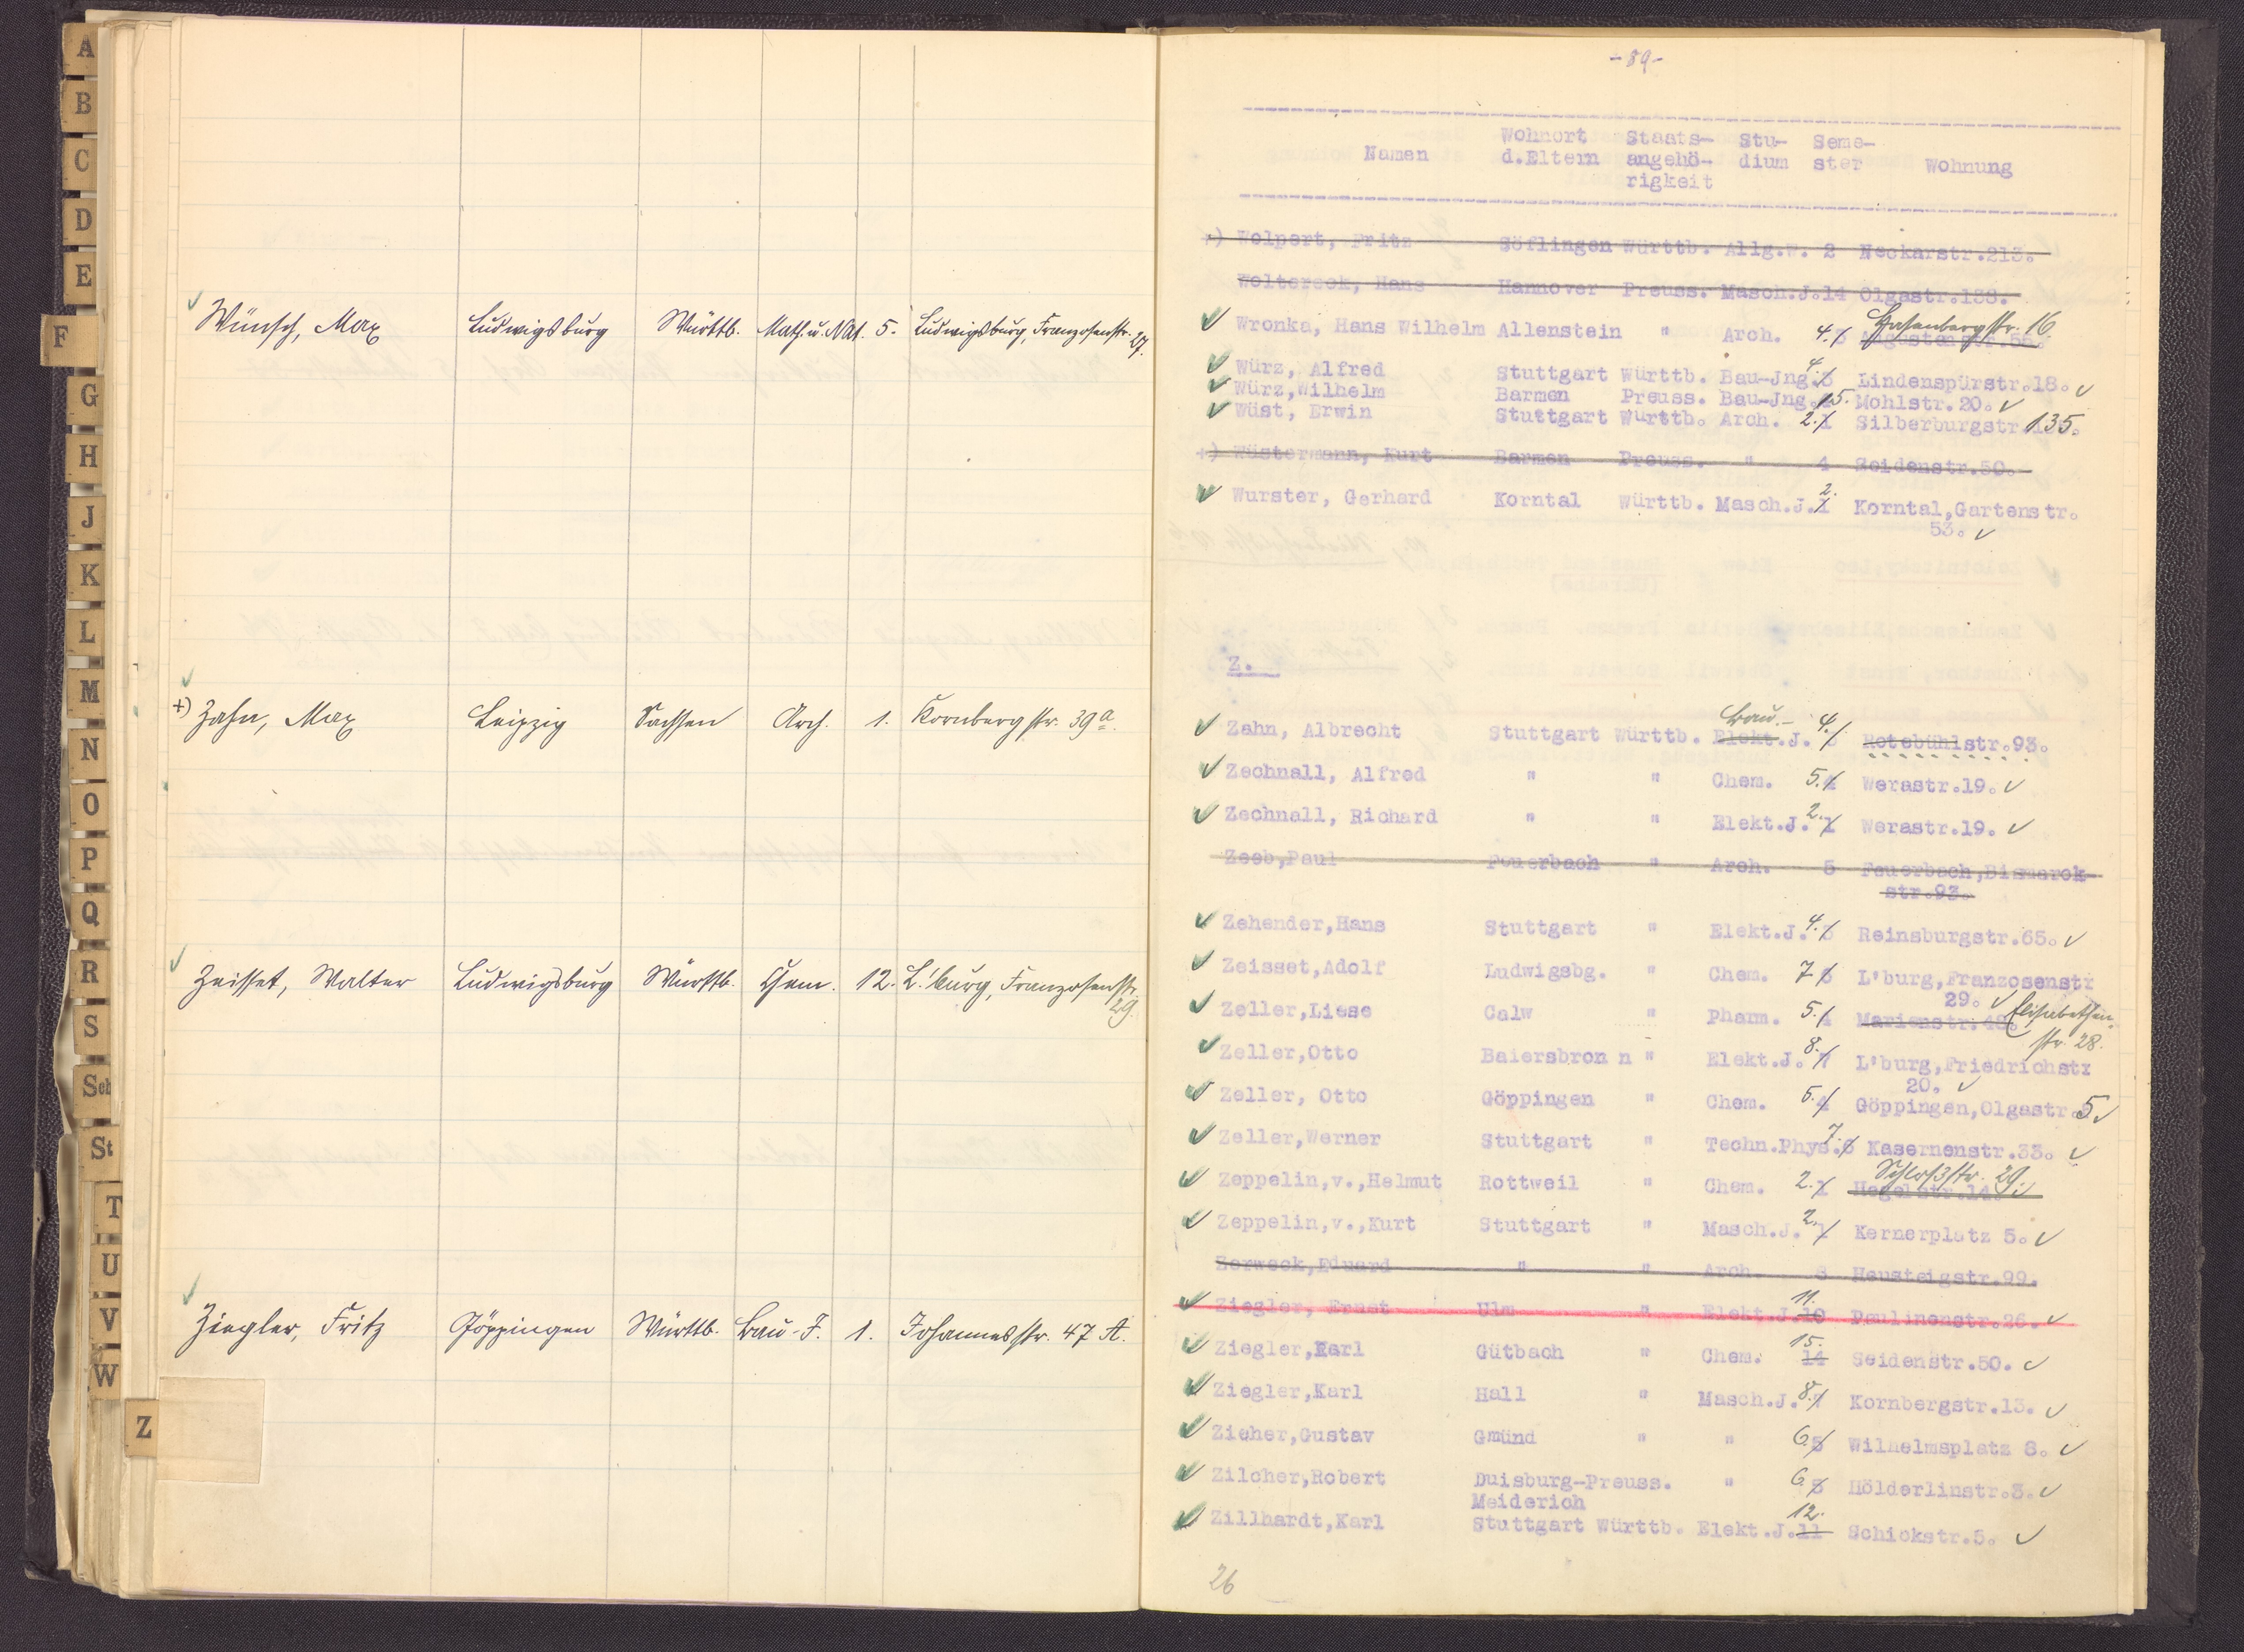 A
B
C
D
E
F
G
H
J
K
L
M
N
O
P
Q
R
S
Sch
St
T
U
V
W
Z
Wünsch, Max Ludwigsburg Württb. Math. u. Nat. 5. Ludwigsburg, Franzosenstr. 27.
+) Zahn, Max Leipzig Sachsen Arch. 1. Kornbergstr. 39a.
Zeisset, Walter Ludwigsburg Württb. Chem. 12. L'burg, Franzosenstr.
29.
Ziegler, Fritz Göppingen Württb. Bau-J. 1. Johannesstr. 47 A.
-89-
Namen Wohnort d.Eltern Staats-angehö-rigkeit Stu-dium Seme-ster Wohnung
+) Wolpert, Fritz Söflingen Württb. Allg.W. 2 Neckarstr.213.
Woltereck, Hans Hannover Preuss. Masch.J.14 Olgastr.138.
Hasenbergstr. 16
Wronka, Hans Wilhelm Allenstein " Arch. 4. 3 Augustenstr.
Würz, Alfred Stuttgart Württb. Bau-Jng. 4. 3 Lindenspürstr.18.
Würz,Wilhelm Barmen Preuss. Bau-Jng. 5. Mohlstr.20.
Wüst, Erwin Stuttgart Württb. Arch. 2. 1 Silberburgstr. 135.
+) Wüstermann, Kurt Barmen Preuss. " 4 Seidenstr.50.
Wurster, Gerhard Korntal Württb. Masch.J. 2. 1 Korntal,Gartenstr.
53.
Z.
Zahn, Albrecht Stuttgart Württb. Bau.- Elekt.J. 4. 3 Rotebühlstr.93.
Zechnall, Alfred " " Chem. 5. 4 Werastr.19.
Zechnall, Richard " " Elekt.J. 2. 1 Werastr.19.
Zeeb,Paul Feuerbach " Arch. 5 Feuerbach,Bismarck-
str.93.
Zehender,Hans Stuttgart " Elekt.J. 4. 3 Reinsburgstr.65.
Zeisset,Adolf Ludwigsbg. " Chem. 7 6 L'burg,Franzosenstr
29.
Zeller,Liese Calw " Pharm. 5. 4 Marienstr.48. Elisabethen-
str. 28.
Zeller,Otto Baiersbronn " Elekt.J. 8. 7 L'burg,Friedrichstr
20.
Zeller, Otto Göppingen " Chem. 5. 4 Göppingen,Olgastr.5
Zeller,Werner Stuttgart " Techn.Phys. 7. 6 Kasernenstr.33.
Schloßstr. 29.
Zeppelin,v.,Helmut Rottweil " Chem. 2. 1 Hegelstr.14.
Zeppelin,v.,Kurt Stuttgart " Masch.J. 2. 1 Kernerplatz 5.
Zerweck,Eduard " " Arch. 8 Heusteigstr.99.
Ziegler, Ernst Ulm " Elekt.J. 11. 10 Paulinenstr.26.
Ziegler,Karl Gütbach " Chem. 15. 14 Seidenstr.50.
Ziegler,Karl Hall " Masch.J. 8. 7 Kornbergstr.13.
Zieher,Gustav Gmünd " " 6. 5 Wilhelmsplatz 8.
Zilcher,Robert Duisburg-Preuss. " 6. Hölderlinstr.3.
Meiderich
Zillhardt,Karl Stuttgart Württb. Elekt.J. 12. 11 Schickstr.5.
26